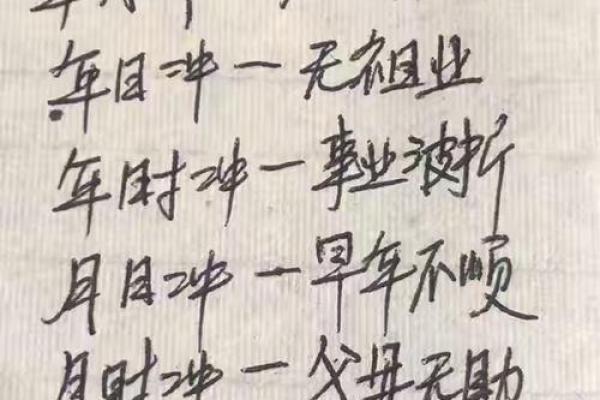 年日冲一无祖业
年时冲一事业波折
月日冲一早年不顺
月时冲一父母无助